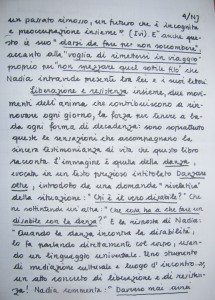 4/12)
un passato rimosso, un futuro che è incognita
e preoccupazione insieme" (Ivi). E' anche que-
sto il suo "darsi da fare per non soccombere",
accanto alla "voglia di rimettersi in viaggio"
proprio per "non spezzare quel sottile filo" che
Nadia intende presenti tra lei e i suoi lettori.
Liberazione e resistenza insieme, due movi-
menti dell'anima che contribuiscono a rin-
novare ogni giorno, la forza per tenere a ba-
da ogni forma di decadenza: sono soprattutto
queste le sensazioni che accompagnano la
sincera testimonianza di vita che questo libro
racconta. L'immagine è quella della danza,
evocata in un testo prezioso intitolato Danzare
oltre, introdotto da una domanda "rivelativa"
della situazione: "Chi è il vero disabile? Che
ne sottintende un'altra: "Che cosa ha a che fare un
disabile con la danza?" E la risposta di Nadia:
"Quando la danza incontra la disabilità,
lo fa parlando direttamente col corpo, usan-
do un linguaggio universale. Uno strumento
di mediazione culturale e luogo d'incontro,
un alto concetto di liberazione e di resisten-
za! Nadia commenta: "Davvero mai avrei